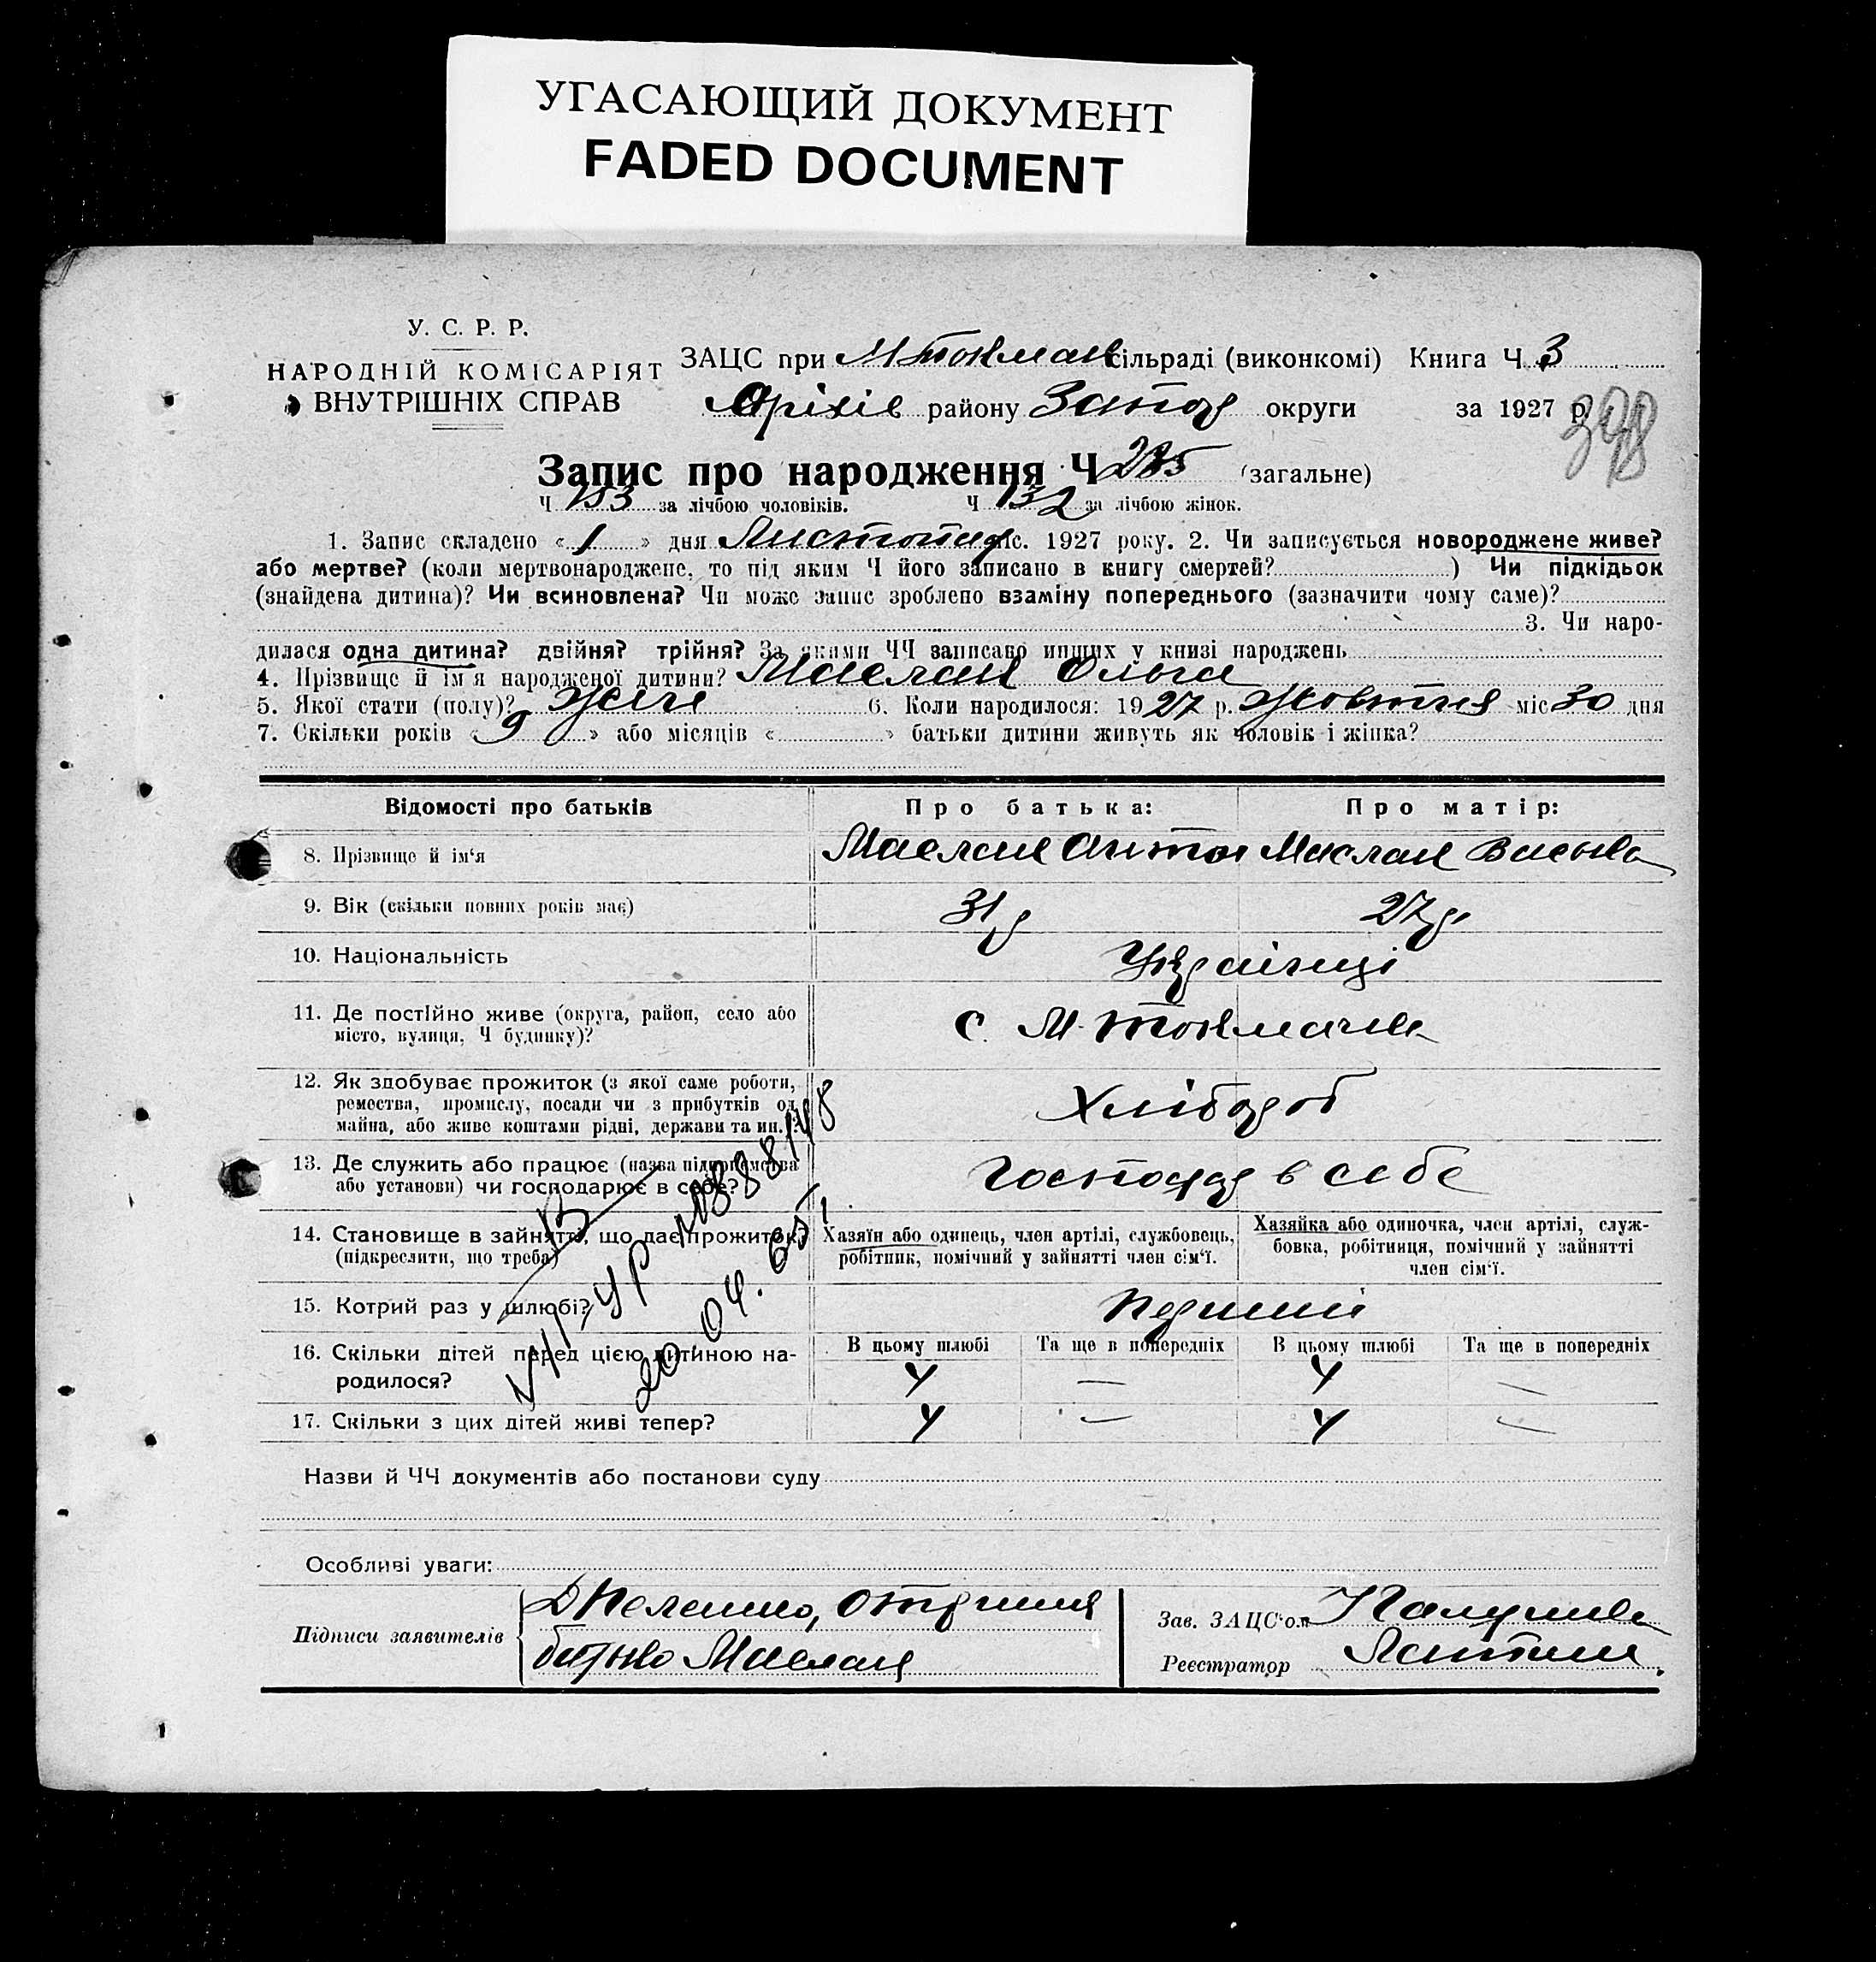 УГАСАЮЩИЙ ДОКУМЕНТ
FADED DOCUMENT
У. С. Р. Р.
НАРОДНІЙ КОМІСАРІЯТ
ВНУТРІШНІХ СПРАВ
ЗАЦС при М Токмач сільраді (виконкомі) Книга Ч. 3
Оріхів району Запор округи за 1927 р.
398
Запис про народження Ч 285 (загальне)
Ч 153 за лічбою чоловіків. Ч 132 за лічбою жінок.
1. Запис складено « 1 » дня Листопад міс. 1927 року. 2. Чи записується новороджене живе?
або мертве? (коли мертвонароджене, то під яким Ч його записано в книгу смертей? ) Чи підкідьок
(знайдена дитина)? Чи всиновлена? Чи може запис зроблено взаміну попереднього (зазначити чому саме)?
3. Чи наро-
дилася одна дитина? двійня? трійня? За якими ЧЧ записано инших у книзі народжень
4. Прізвище й ім'я народженої дитини? Маслак Ольга
5. Якої стати (полу)? жін 6. Коли народилося: 1927 р. Жовтня міс 30 дня
7. Скільки років « 9 » або місяців « » батьки дитини живуть як чоловік і жінка?
Відомості про батьків Про батька: Про матір:
8. Прізвище й ім'я Маслак Антон Маслак
9. Вік (скільки повних років має) 31 р 27 р.
10. Національність Українці
11. Де постійно живе (округа, район, село або
місто, вулиця, Ч будинку)? с. М-Токмачка
12. Як здобуває прожиток (з якої саме роботи,
ремества, промислу, посади чи з прибутків од
майна, або живе коштами рідні, держави та ин.)? Хлібороб
13. Де служить або працює (назва підприємства
або установи) чи господарює в себе? Господар в себе
14. Становище в зайнятті, що дає прожиток
(підкреслити, що треба)
Хазяїн або одинець, член артілі, службовець,
робітник, помічний у зайнятті член сім'ї.
Хазяйка або одиночка, член артілі, служ-
бовка, робітниця, помічний у зайнятті
член сім'ї.
15. Котрий раз у шлюбі? Перший
16. Скільки дітей перед цією дитиною на-
родилося?
В цьому шлюбі Та ще в попередніх В цьому шлюбі Та ще в попередніх
4 — 4 —
17. Скільки з цих дітей живі тепер? 4 — 4 —
20. 04. 65
Назви й ЧЧ документів або постанови суду
Особливі уваги:
Підписи заявителів
батько Маслак
Зав. ЗАЦС'ом
Реєстратор